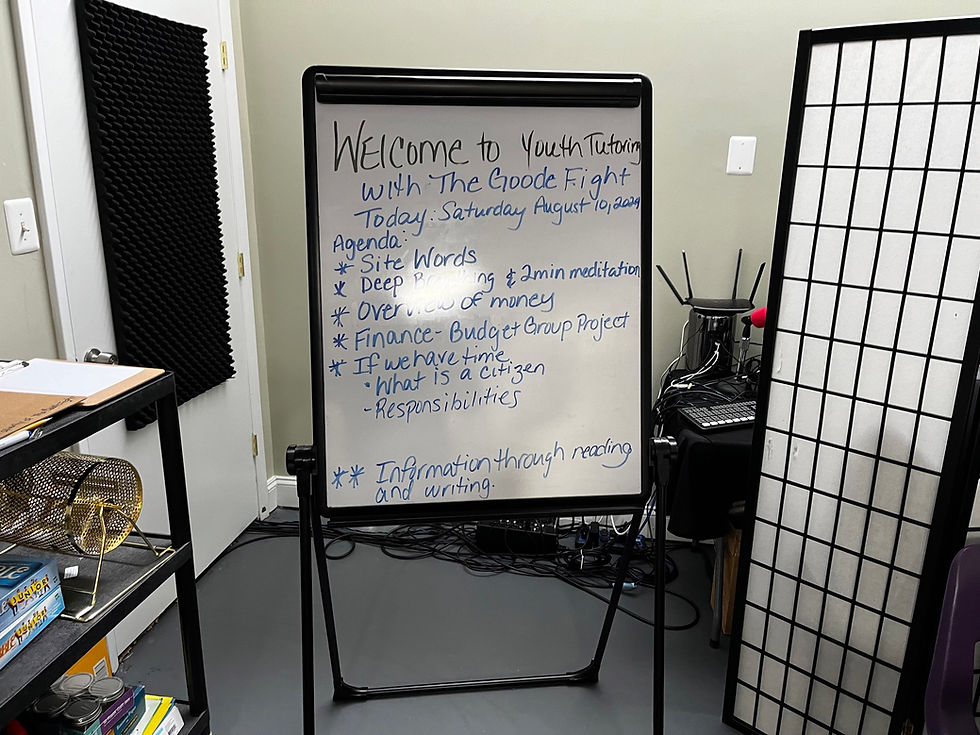 Welcome to Youth Tutoring
with The Goode Fight
Today: Saturday August 10, 2024
Agenda:
* Site Words
* Deep Breathing & 2min meditation
* Overview of money
* Finance - Budget Group Project
* If we have time
• What is a citizen
- Responsibilities
** Information through reading
and writing.
JUNIOR